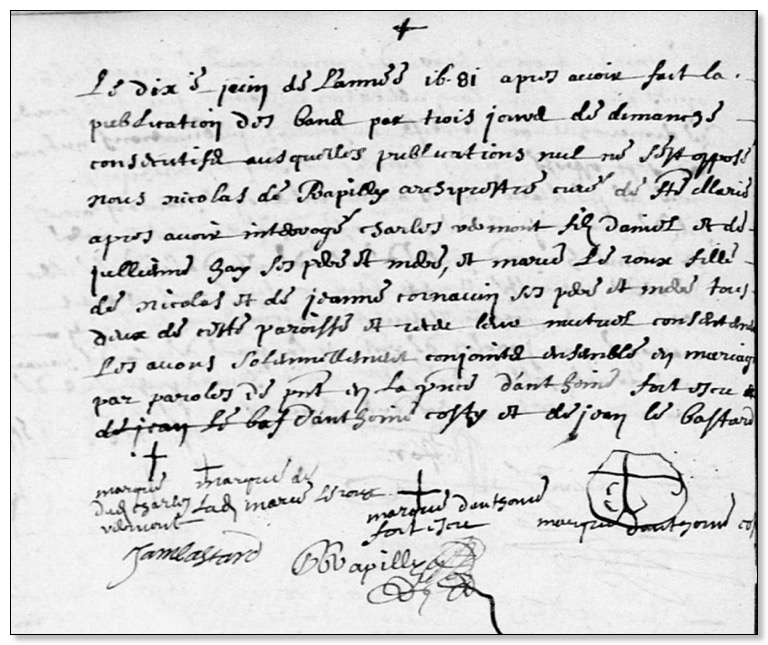 Le dixe juin de Lannee 1681 apres avoir fait la
publication des bans par trois jours de dimanche
consecutifs ausquelles publications nul ne sest opposé
nous nicolas de Bapilly archiprestre curé de Ste Marie
apres avoir interrogé charles vermont fils daniel et de
jullienne hay ses pere et mere, et marie Le roux fille
de nicolas et de jeanne cornauin ses pere et mere tous
deux de cette paroisse et receu leur mutuel consentem
Les avons solemnellement conjoints ensemble en mariage
par paroles de pnt en La pnce danthoine fort escu
de jean Le bas danthoine costy et de jean le bastard
marque
dud charles
vermont
marque de
Lad marie Leroux
marque danthoine
fort escu
marque danthoine cos
Jan bastard
Bapilly